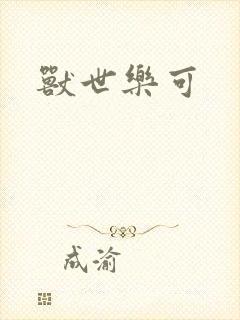 獸世樂可
成渝